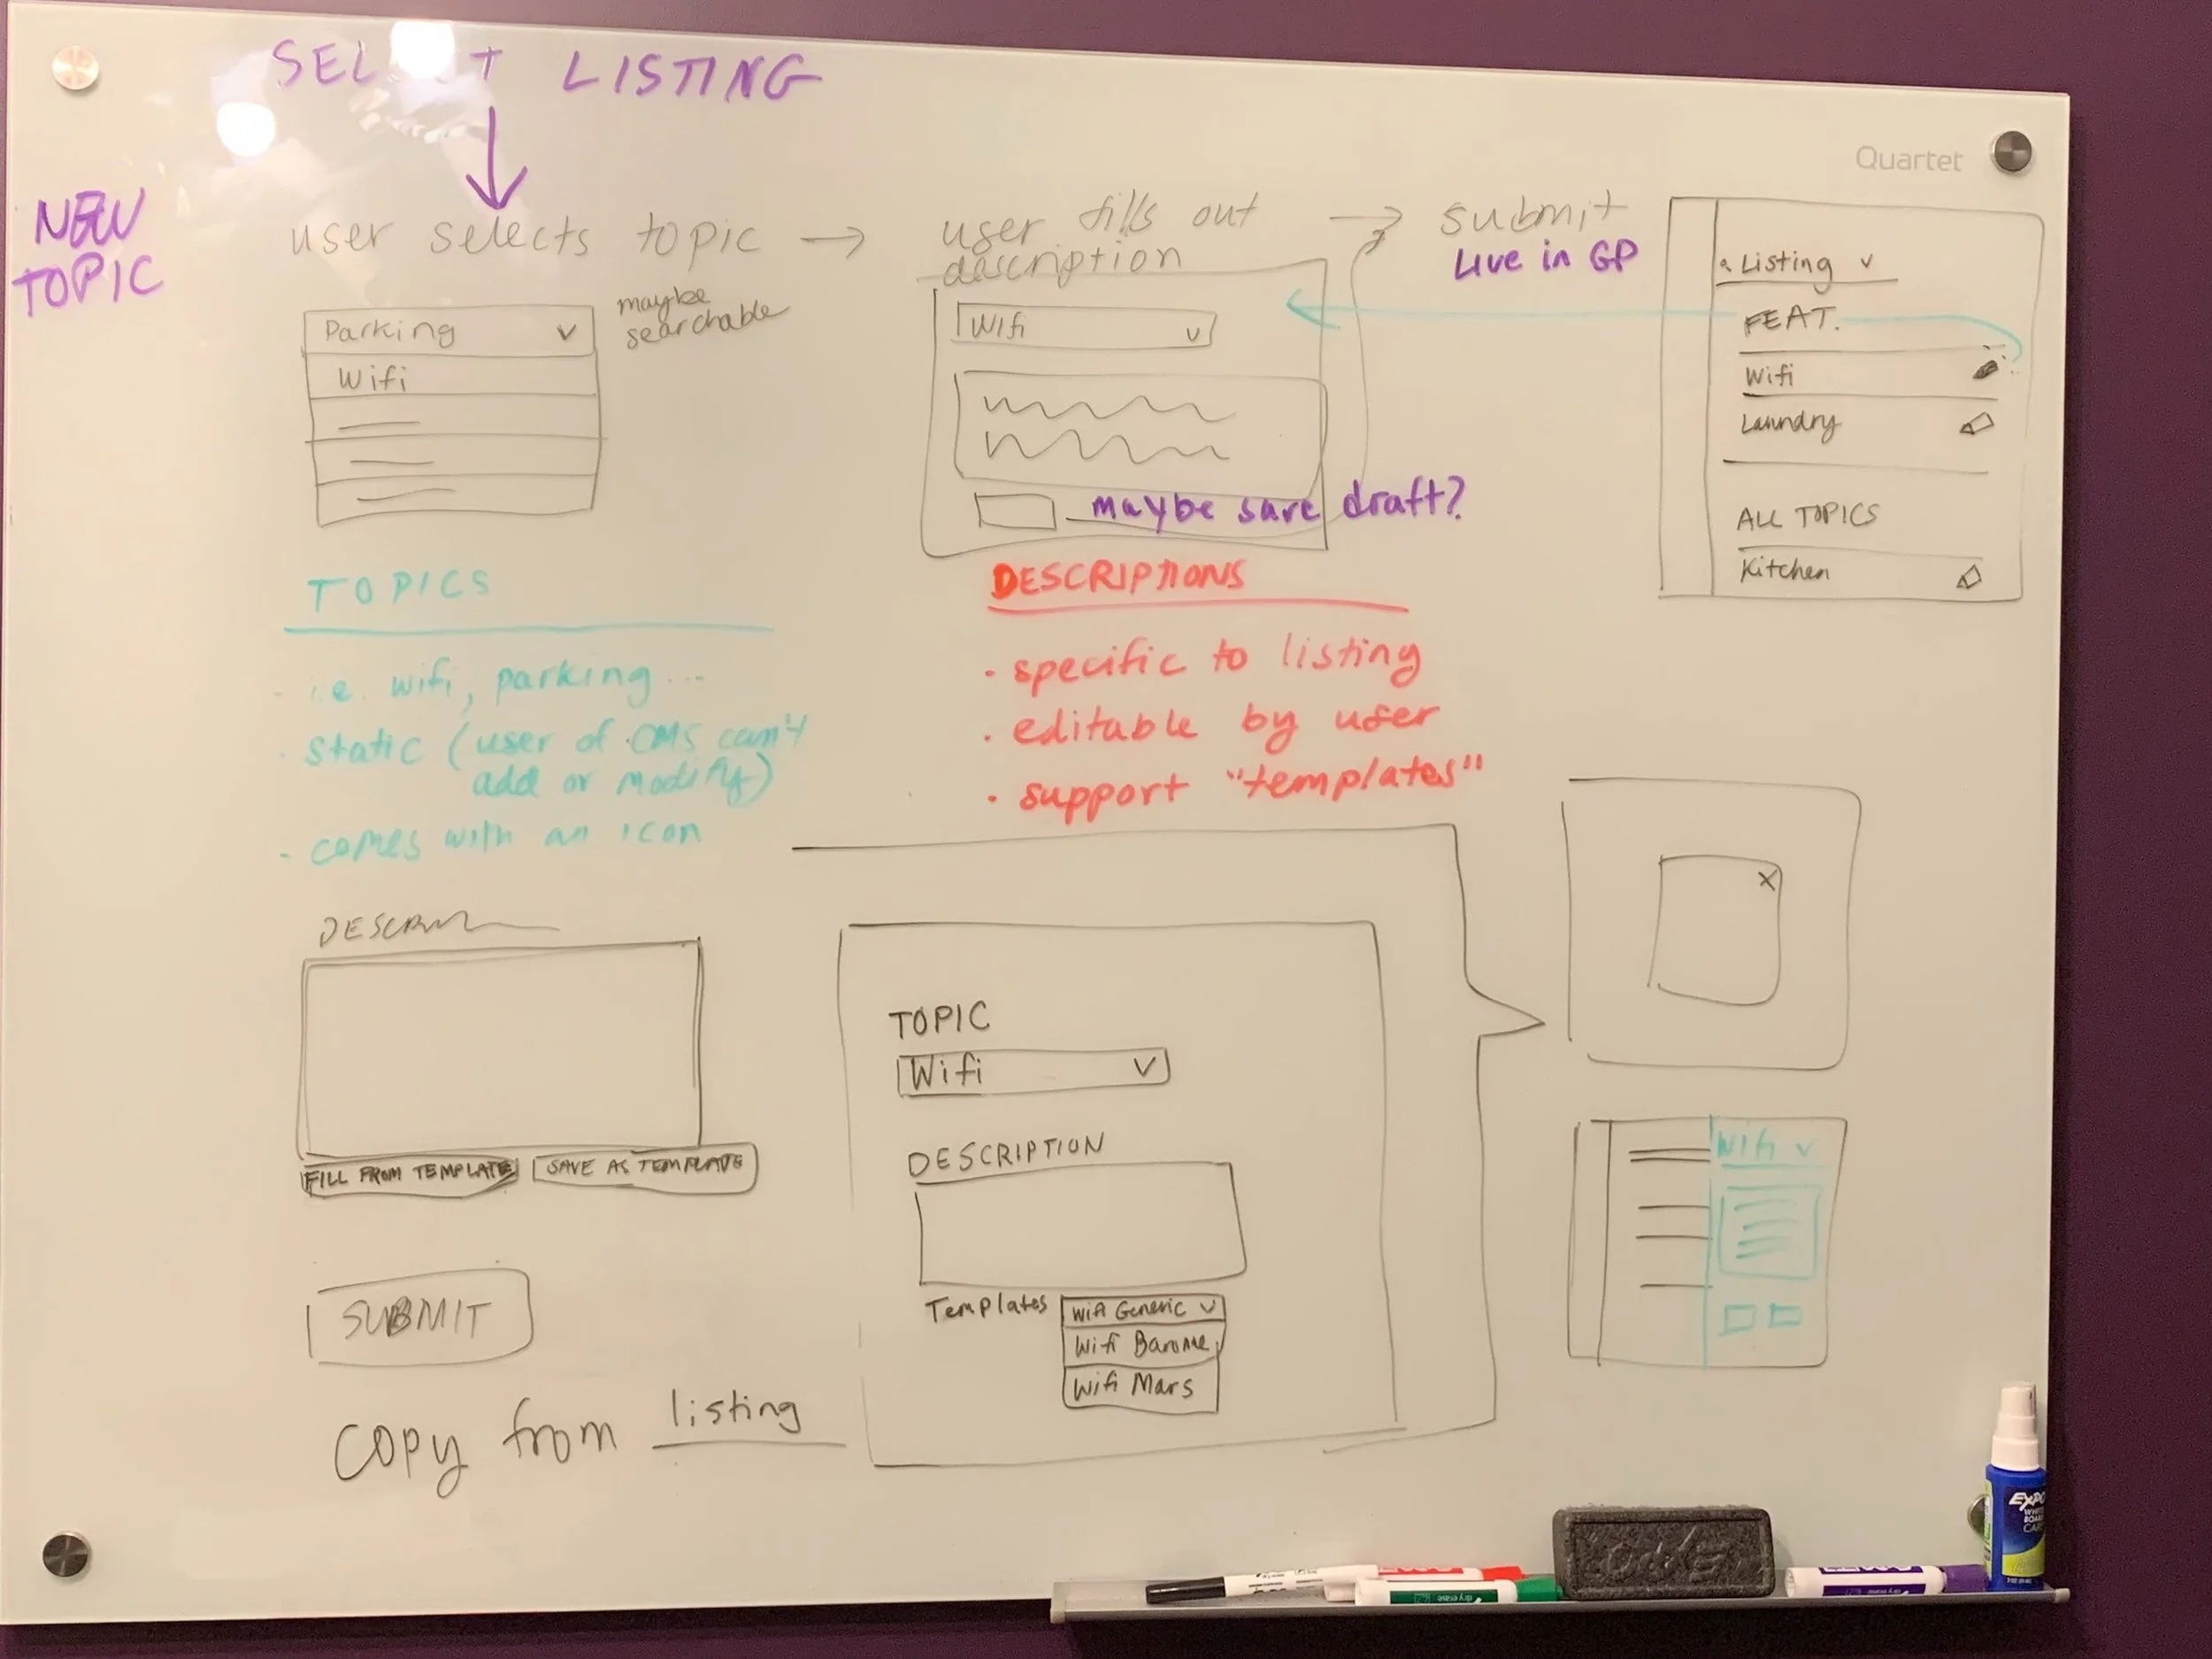 SELECT LISTING
Quartet
NEW
TOPIC
user selects topic →
user fills out
description
→ submit
Live in GP
maybe
searchable
Parking
Wifi
Wifi
maybe save draft?
Listing
FEAT.
Wifi
Laundry
ALL TOPICS
Kitchen
TOPICS
- i.e. wifi, parking...
· static (user of CMS can't
add or modify)
- comes with an icon
DESCRIPTIONS
· specific to listing
· editable by user
· support "templates"
FILL FROM TEMPLATE
SAVE AS TEMPLATE
SUBMIT
copy from listing
TOPIC
Wifi
DESCRIPTION
Templates
Wifi Generic
Wifi Baronne
Wifi Mars
X
Wifi
EXPO
WHITE
BOARD
CARE